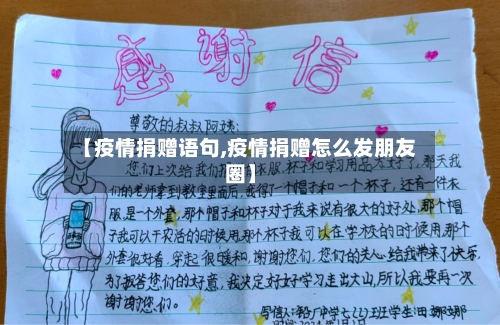 感谢信
尊敬的叔叔阿姨:
【疫情捐赠语句,疫情捐赠怎么发朋友
圈】
您们上次给我们
子和学习用品
那天我
们的老师拿到教室里面后,我得了一个帽子和一个杯子,还有一件衣
服,是一个外套,那个帽子和杯子对于我来说有很大的好处,那个帽
子我可以干农活的时候使用,那个杯子我可以在学校的时候使用,那个
外套很好看,穿起很暖和,谢谢您们,您们的爱心给我带来了快乐,
为了报答您们的好意,我决定好好学习走出大山,所以我要再一次
谢谢您们。
写信人:
中学七(2)班学生: